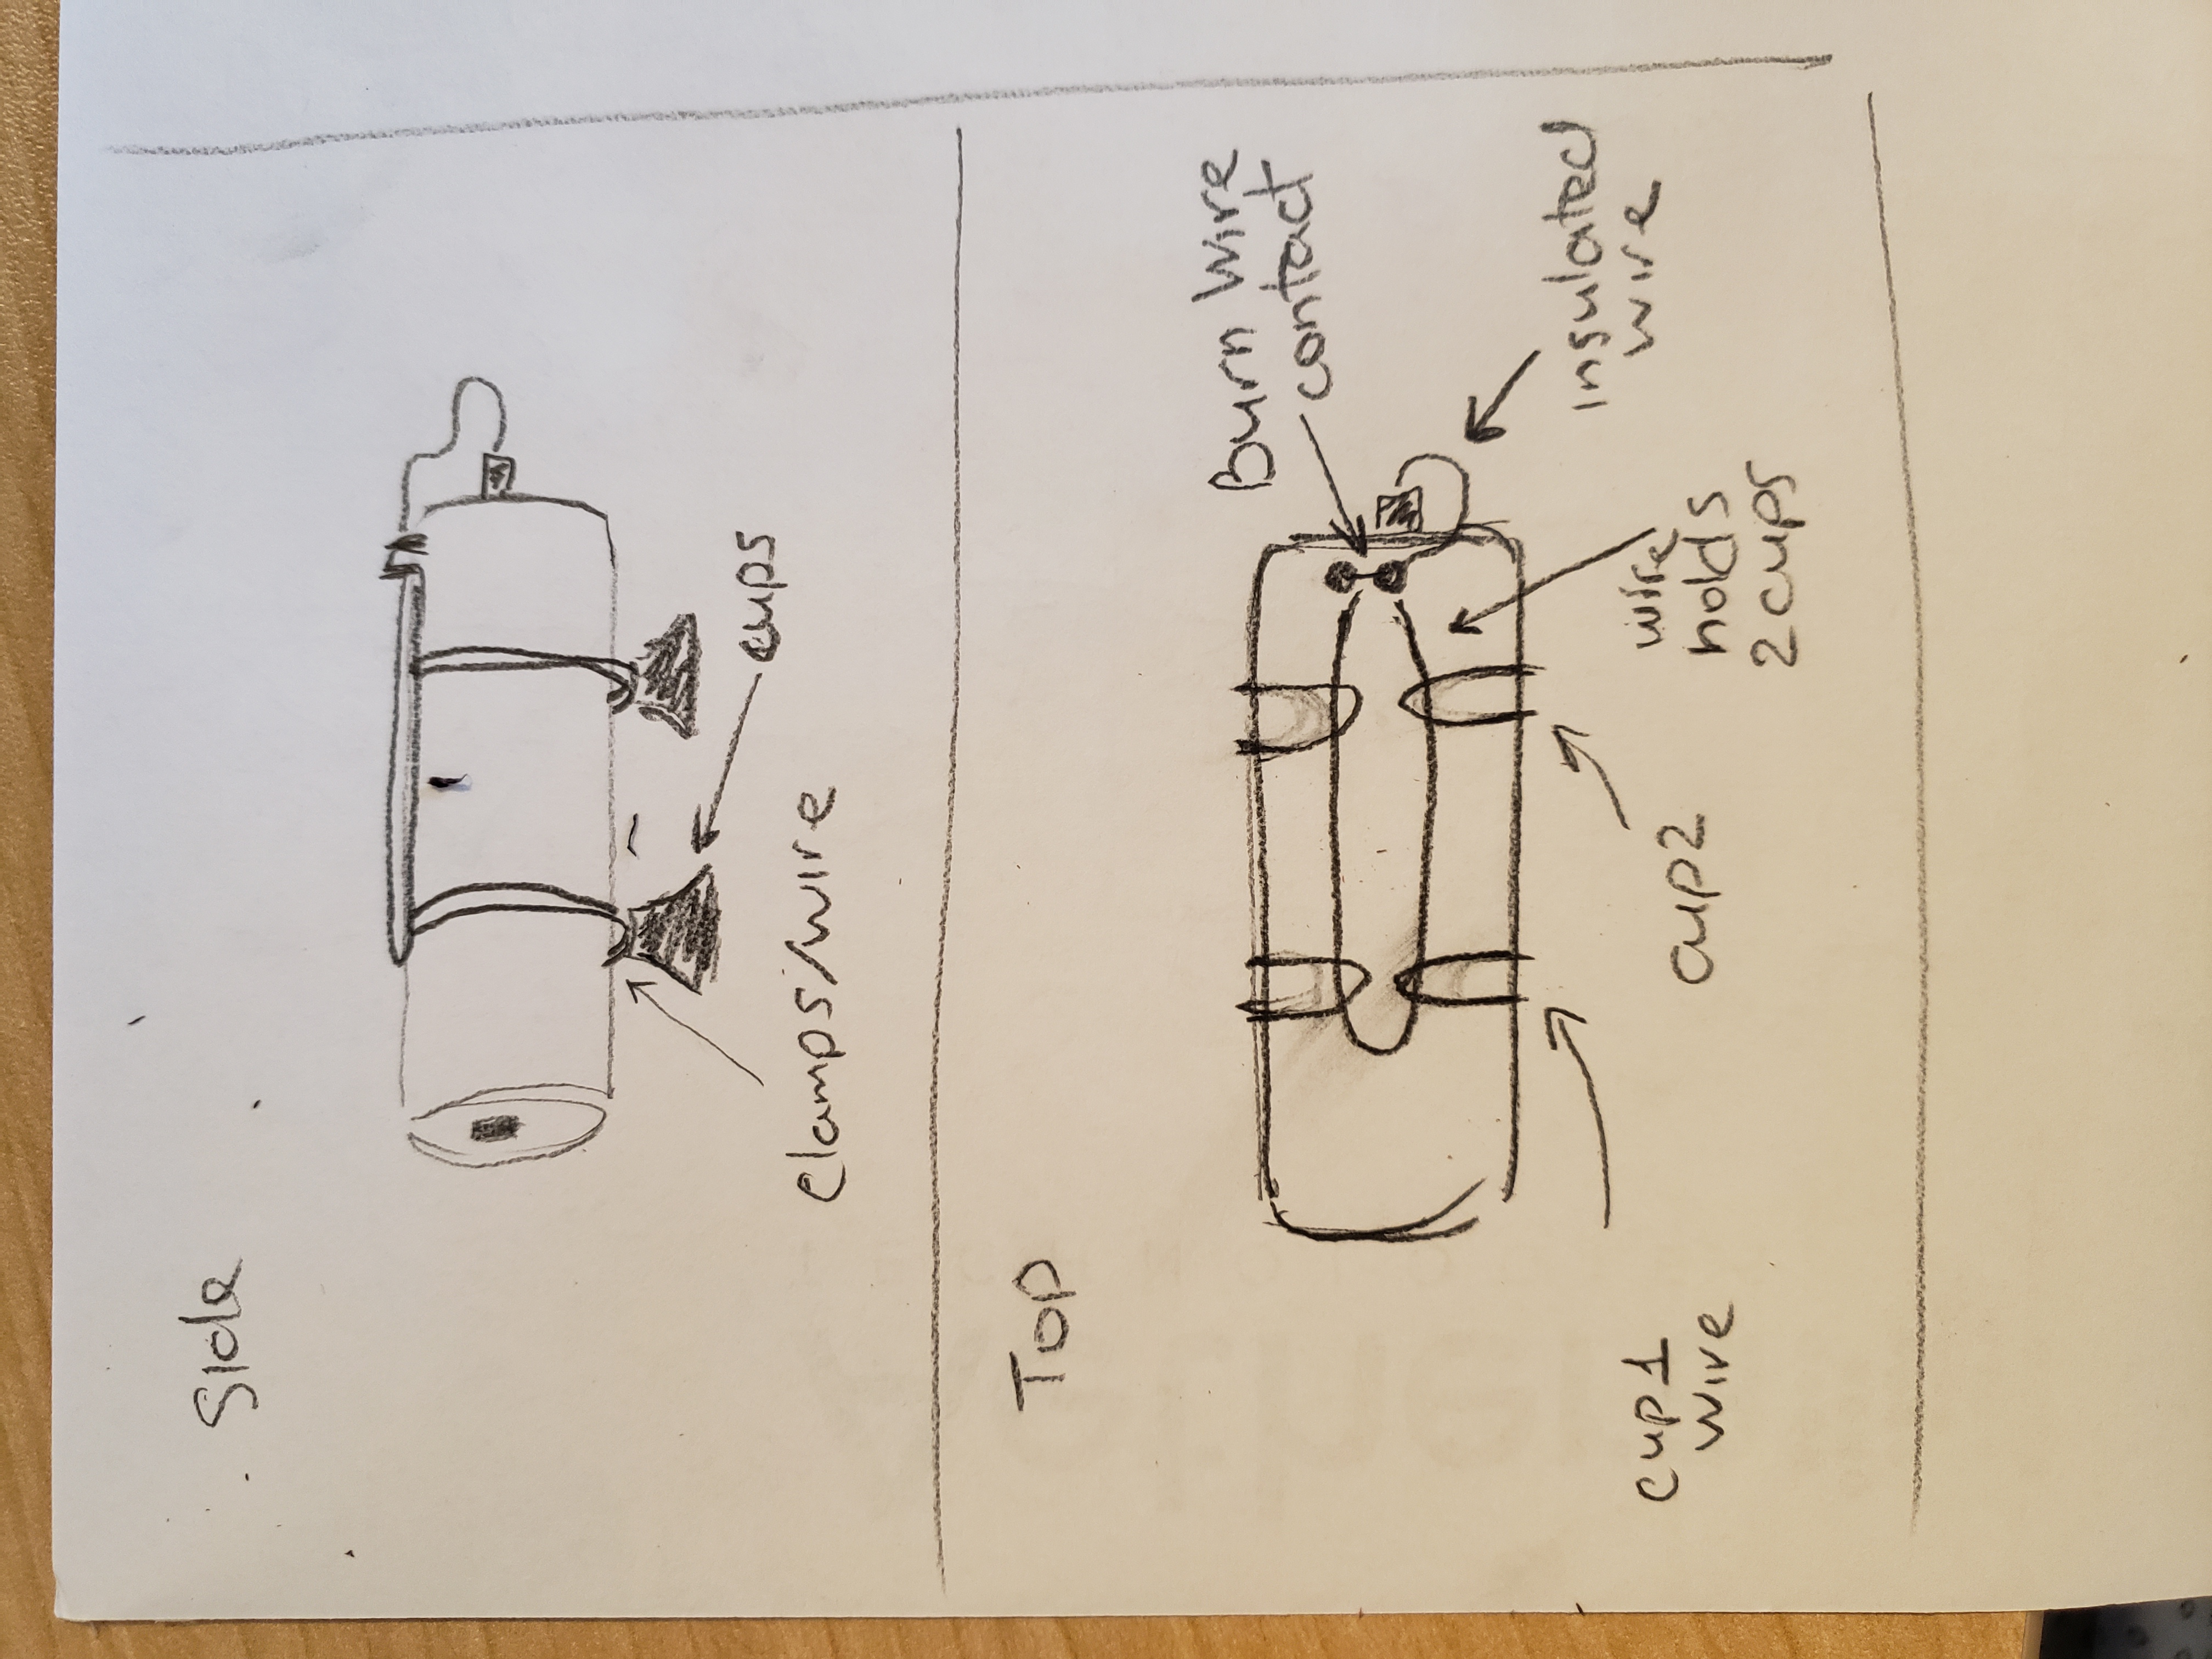 Side
cups
clamps/wire
Top
Burn Wire
contact
insulated
wire
cup1
wire
cup2
wire
holds
2 cups